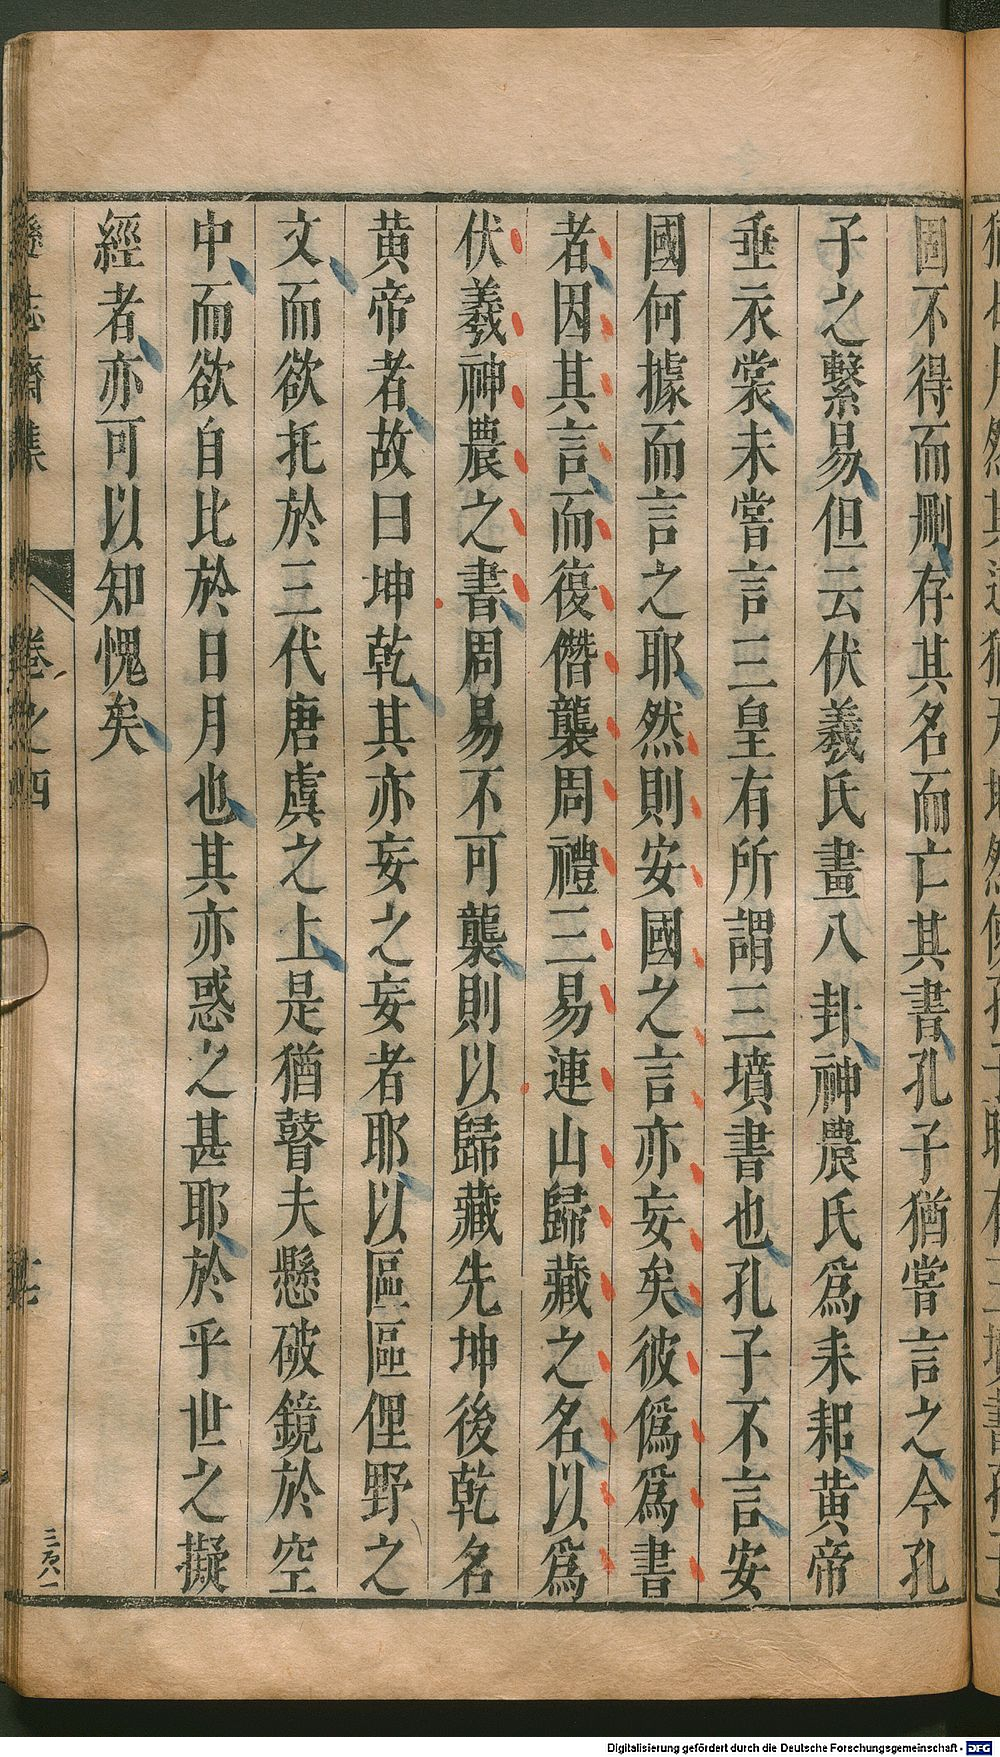 固不得而刪存其名而亡其書孔子猶嘗言之今孔
子之繫易但云伏羲氏畫八卦神農氏爲耒耜黃帝
垂衣裳未嘗言三皇有所謂三墳書也孔子不言安
國何據而言之耶然則安國之言亦妄矣彼僞爲書
者因其言而復僭襲周禮三易連山歸藏之名以爲
伏羲神農之書周易不可襲則以歸藏先坤後乾名
黃帝者故曰坤乾其亦妄之妄者耶以區區俚野之
文而欲托於三代唐虞之上是猶瞽夫懸破鏡於空
中而欲自比於日月也其亦惑之甚耶於乎世之擬
經者亦可以知愧矣
遜志齋集 卷之四
Digitalisierung gefördert durch die Deutsche Forschungsgemeinschaft - DFG